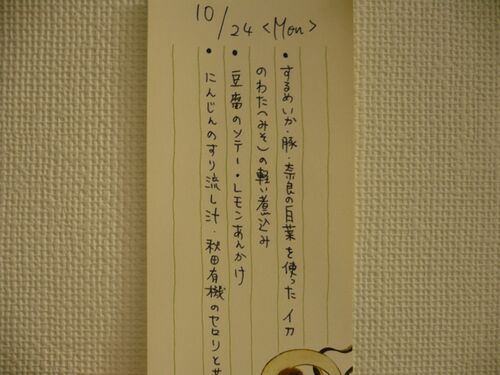 10/24 <Mon>
• するめいか・豚・奈良の白菜を使った イカ
のわた(みそ)の軽い煮込み
• 豆腐のソテー・レモンあんかけ
• にんじんのすり流し汁・秋田有機のセロリと